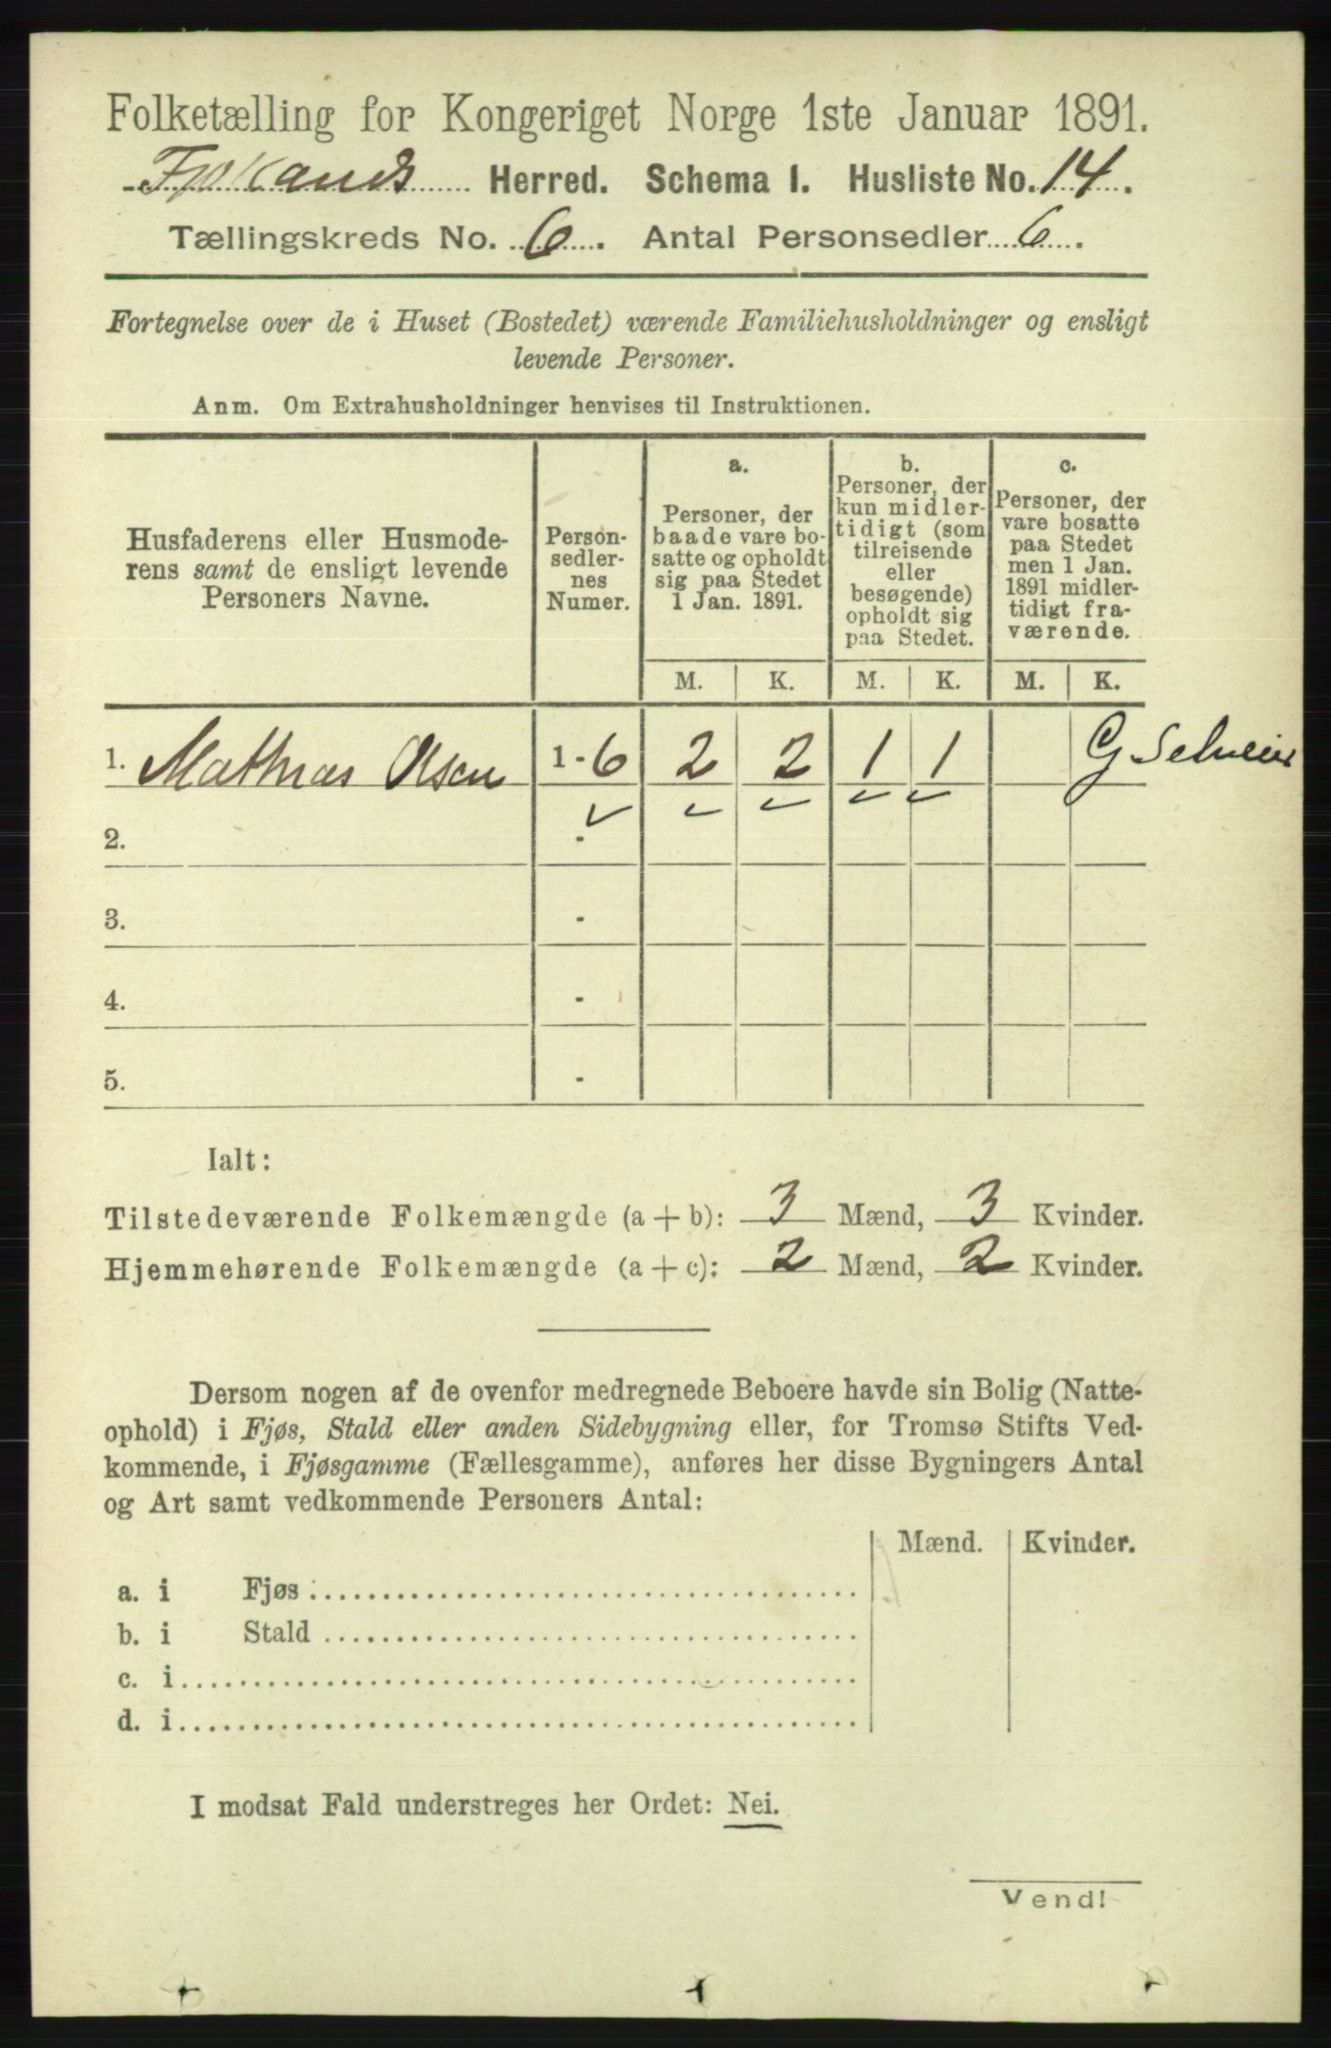 Folketælling for Kongeriget Norge 1ste Januar 1891.
Fjotlands Herred. Schema I. Husliste No. 14.
Tællingskreds No. 6. Antal Personsedler 6.
Fortegnelse over de i Huset (Bostedet) værende Familiehusholdninger og ensligt
levende Personer.
Anm. Om Extrahusholdninger henvises til Instruktionen.
Husfaderens eller Husmode-
rens samt de ensligt levende
Personers Navne.
Person-
sedler-
nes
Numer.
a.
Personer, der
baade vare bo-
satte og opholdt
sig paa Stedet
1 Jan. 1891.
b.
Personer, der
kun midler-
tidigt (som
tilreisende
eller
besøgende)
opholdt sig
paa Stedet.
c.
Personer, der
vare bosatte
paa Stedet
men 1 Jan.
1891 midler-
tidigt fra-
værende.
M. K. M. K. M. K.
1. Mathias Olsen 1-6 2 2 1 1 G
2. -
3. -
4. -
5. -
Ialt:
Tilstedeværende Folkemængde (a + b): 3 Mænd, 3 Kvinder.
Hjemmehørende Folkemængde (a + c): 2 Mænd, 2 Kvinder.
Dersom nogen af de ovenfor medregnede Beboere havde sin Bolig (Natte-
ophold) i Fjøs, Stald eller anden Sidebygning eller, for Tromsø Stifts Ved-
kommende, i Fjøsgamme (Fællesgamme), anføres her disse Bygningers Antal
og Art samt vedkommende Personers Antal:
Mænd. Kvinder.
a. i Fjøs
b. i Stald
c. i
d. i
I modsat Fald understreges her Ordet: Nei.
Vend!